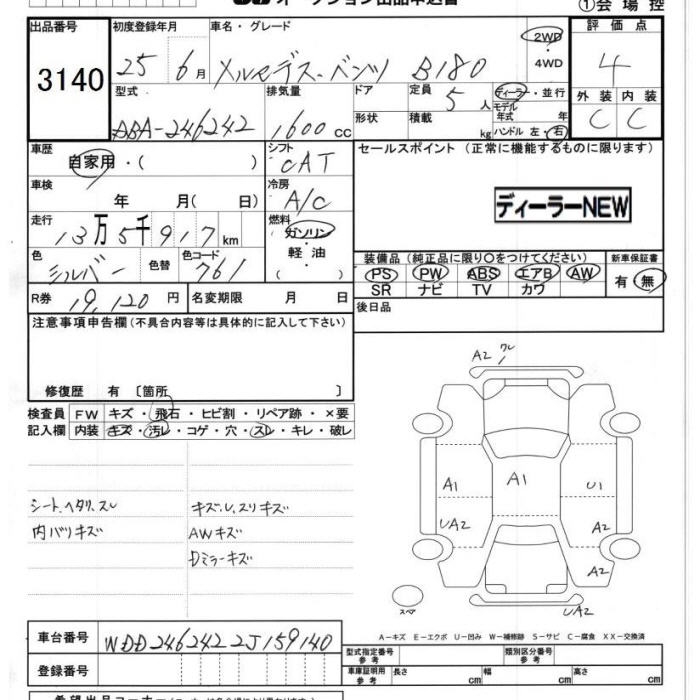 オークション出品申込書
①会場控
出品番号
3140
初度登録年月
25 6月
車名・グレード
メルセデス-ベンツ B180
2WD
・
4WD
評価点
4
型式
DBA-246242
排気量
1600 cc
ドア
形状
定員
5 人
積載 kg
ディーラー・並行
モデル
年式 年
ハンドル 左・右
外装 内装
C C
車歴
自家用・( )
シフト
CAT
セールスポイント (正常に機能するものに限ります)
ディーラーNEW
車検
年 月( 日)
冷房
A/C
走行
13万5千917km
燃料
ガソリン
・
軽油
( )
色
シルバー
色替
色コード
761
装備品 (純正品に限り〇をつけてください)
PS PW ABS エアB AW
SR ナビ TV カワ
新車保証書
有・無
R券 19,120 円
名変期限 月 日
後日品
注意事項申告欄(不具合内容等は具体的に記入して下さい)
修復歴 有 〔箇所 〕
検査員
記入欄
FW キズ・飛石・ヒビ割・リペア跡・×要
内装 キズ・汚レ・コゲ・穴・スレ・キレ・破レ
シート.ヘタリ.スレ
内バリキズ
キズ.U.スリキズ
AWキズ
Dミラーキズ
A2 ワレ
A1
A1
U1
UA2
A2
A2
UA2
スペア
A-キズ E-エクボ U-凹み W-補修跡 S-サビ C-腐食 XX-交換済
車台番号
WDD2462422J159140
登録番号
型式指定番号
参考
類別区分番号
参考
車庫証明用
参考
長さ cm
幅 cm
高さ cm
希望出品コーナー